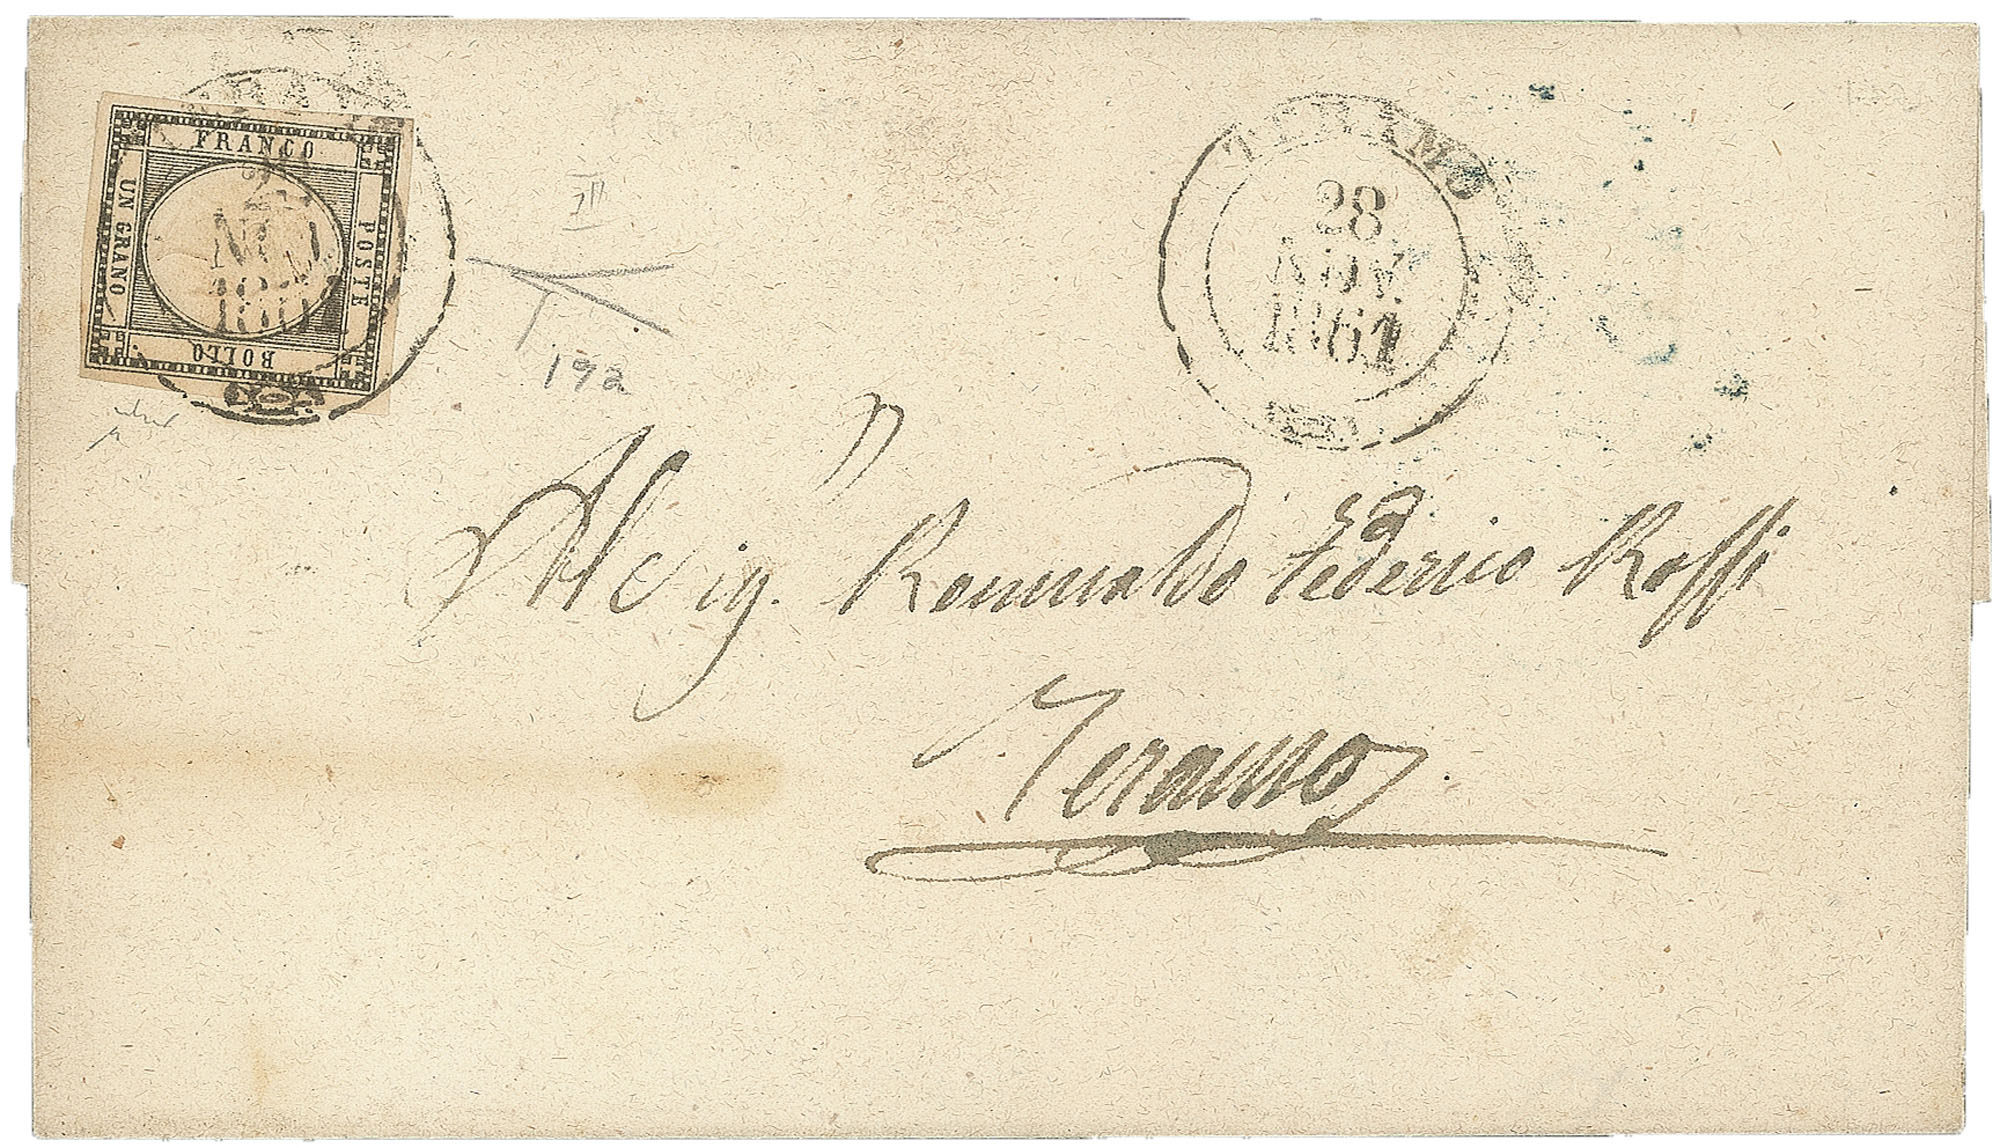 FRANCO
POSTE
BOLLO
UN GRANO
TERAMO
28
NOV.
1861
III
192
Al Sig. Romualdo Federico Rossi
Teramo